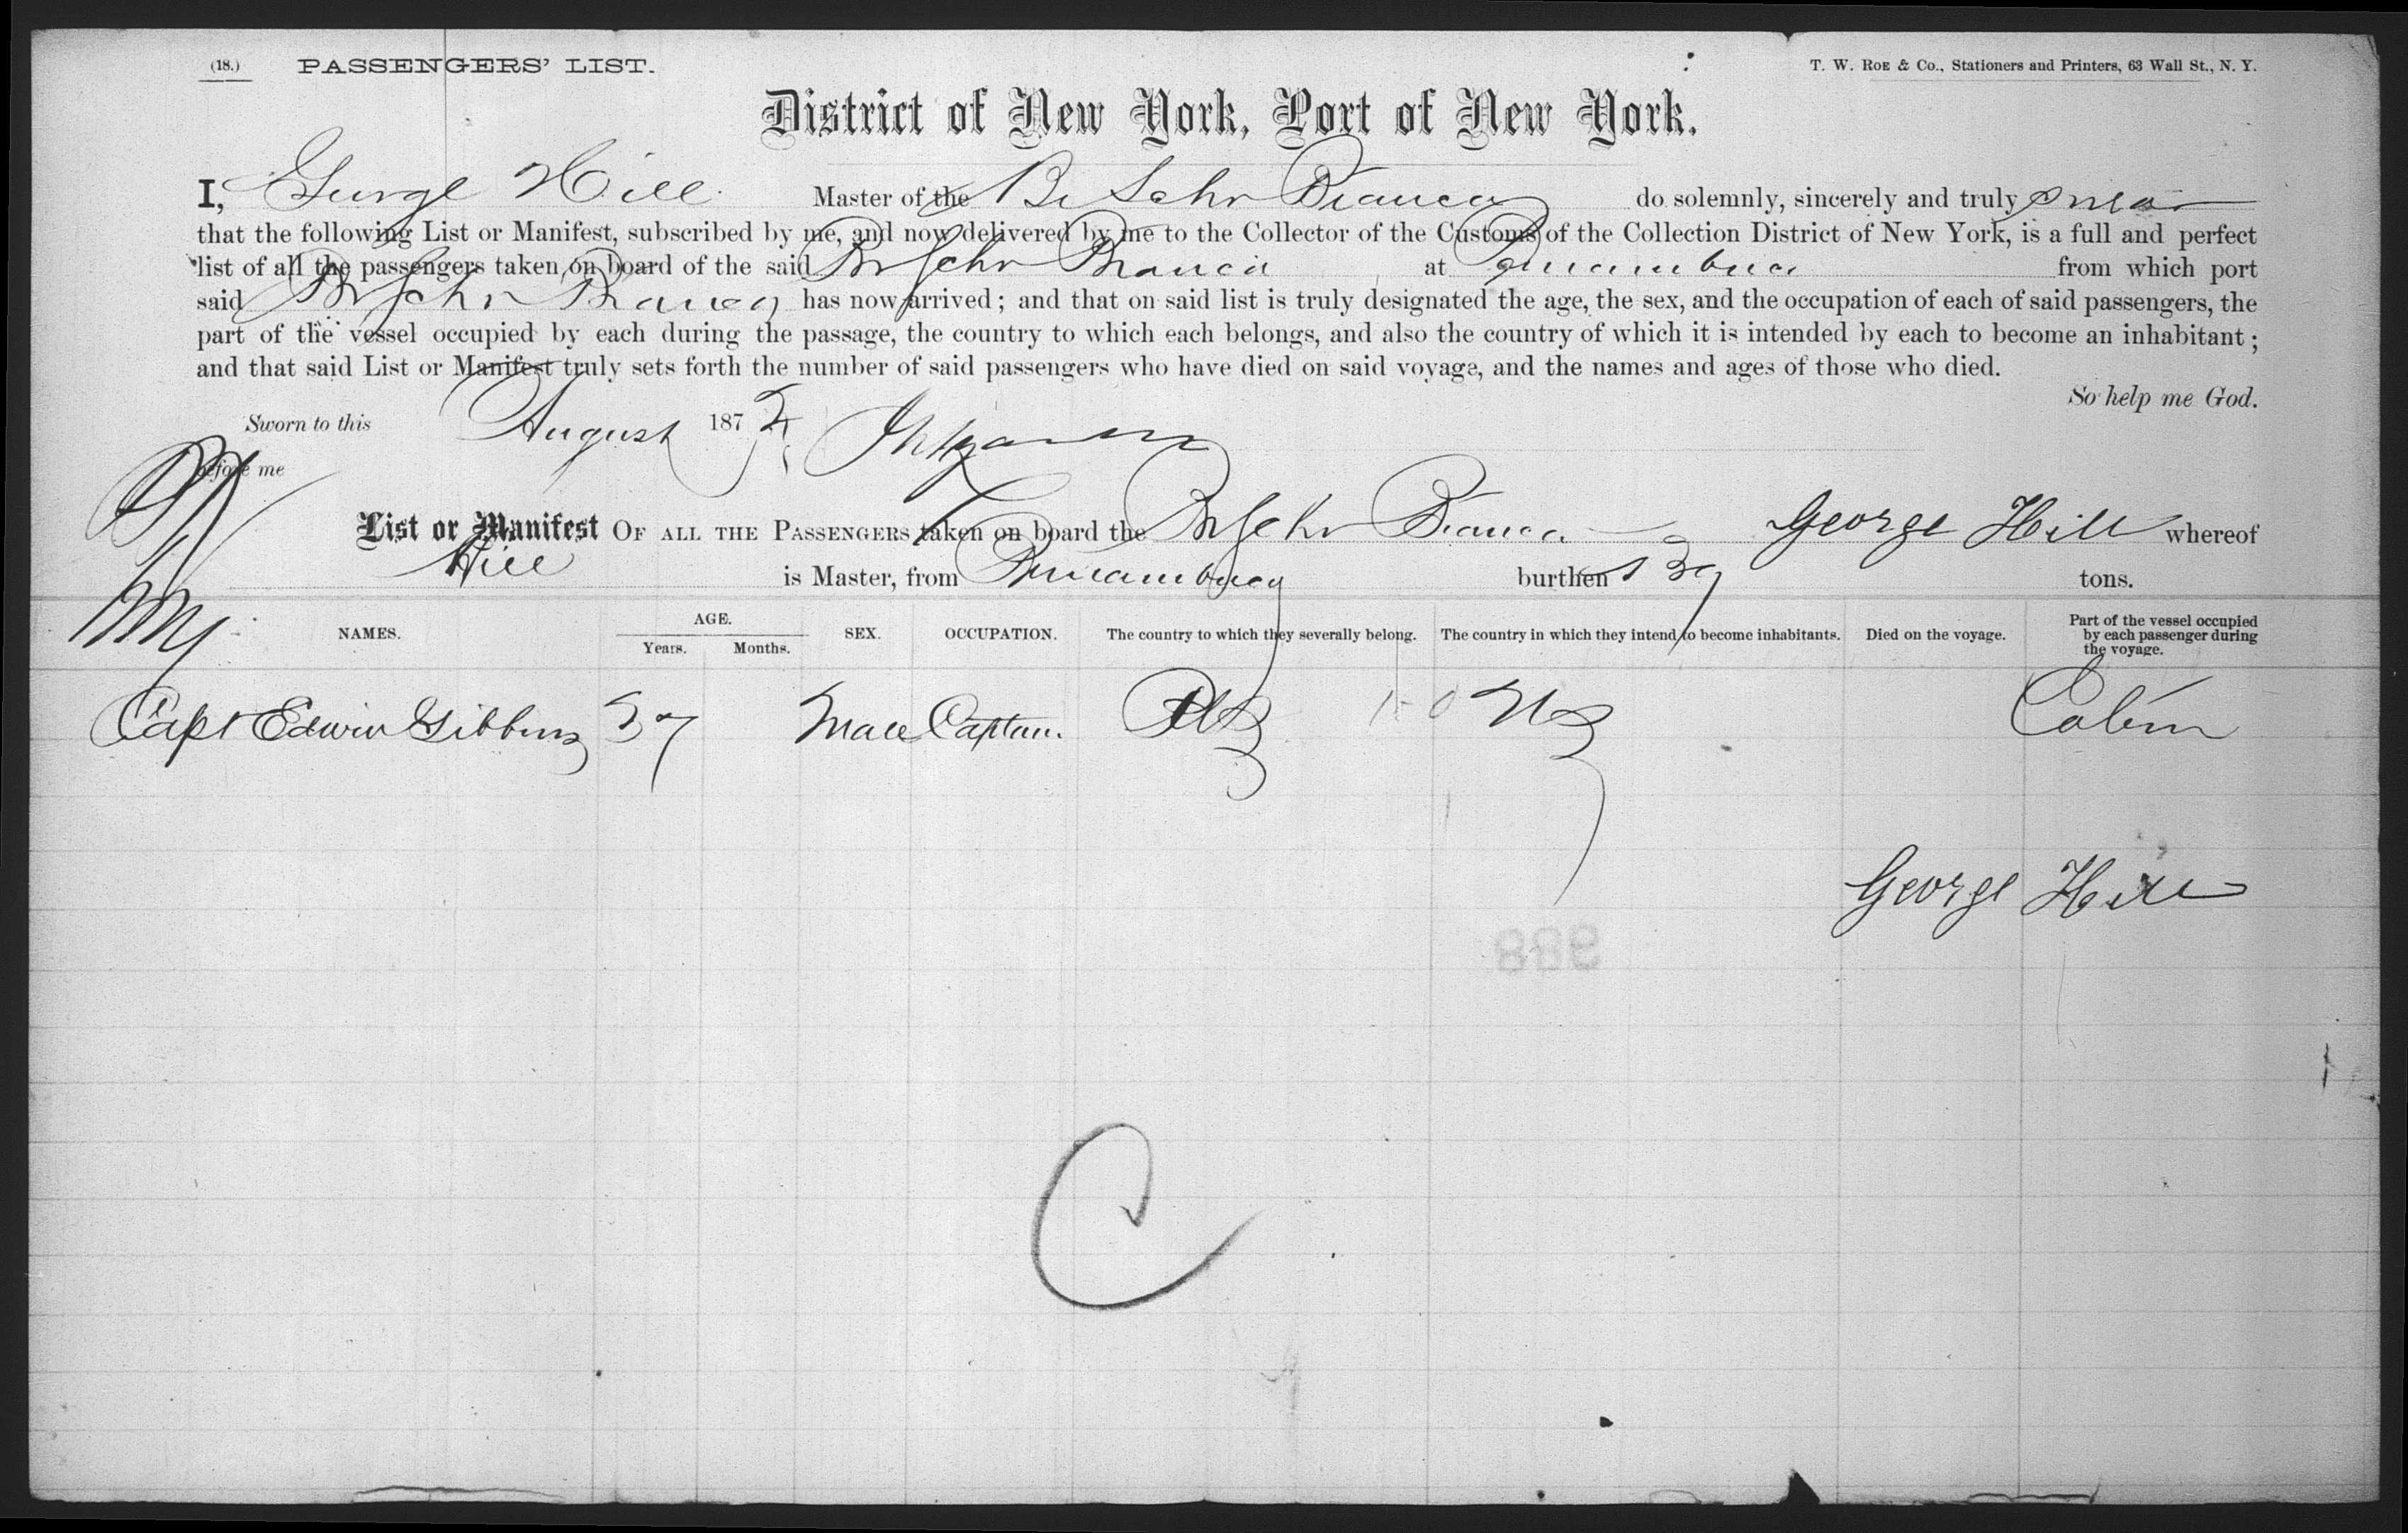 (18.) PASSENGERS' LIST.
T. W. Roe & Co., Stationers and Printers, 63 Wall St., N. Y.
District of New York, Port of New York.
I, George Hill Master of the Br Schr Bianca do solemnly, sincerely and truly swear
that the following List or Manifest, subscribed by me, and now delivered by me to the Collector of the Customs of the Collection District of New York, is a full and perfect
list of all the passengers taken on board of the said Br Schr Bianca at Pernambuco from which port
said Br Schr Bianca has now arrived; and that on said list is truly designated the age, the sex, and the occupation of each of said passengers, the
part of the vessel occupied by each during the passage, the country to which each belongs, and also the country of which it is intended by each to become an inhabitant;
and that said List or Manifest truly sets forth the number of said passengers who have died on said voyage, and the names and ages of those who died.
So help me God.
Sworn to this August 187
before me
List or Manifest OF ALL THE PASSENGERS taken on board the Br Schr Bianca George Hill whereof
Hill is Master, from Pernambuco burthen tons.
NAMES. AGE. Years. Months. SEX. OCCUPATION. The country to which they severally belong. The country in which they intend to become inhabitants. Died on the voyage. Part of the vessel occupied by each passenger during the voyage.
Capt Edwin Gibbons 37 Male Captain Cabin
George Hill
C